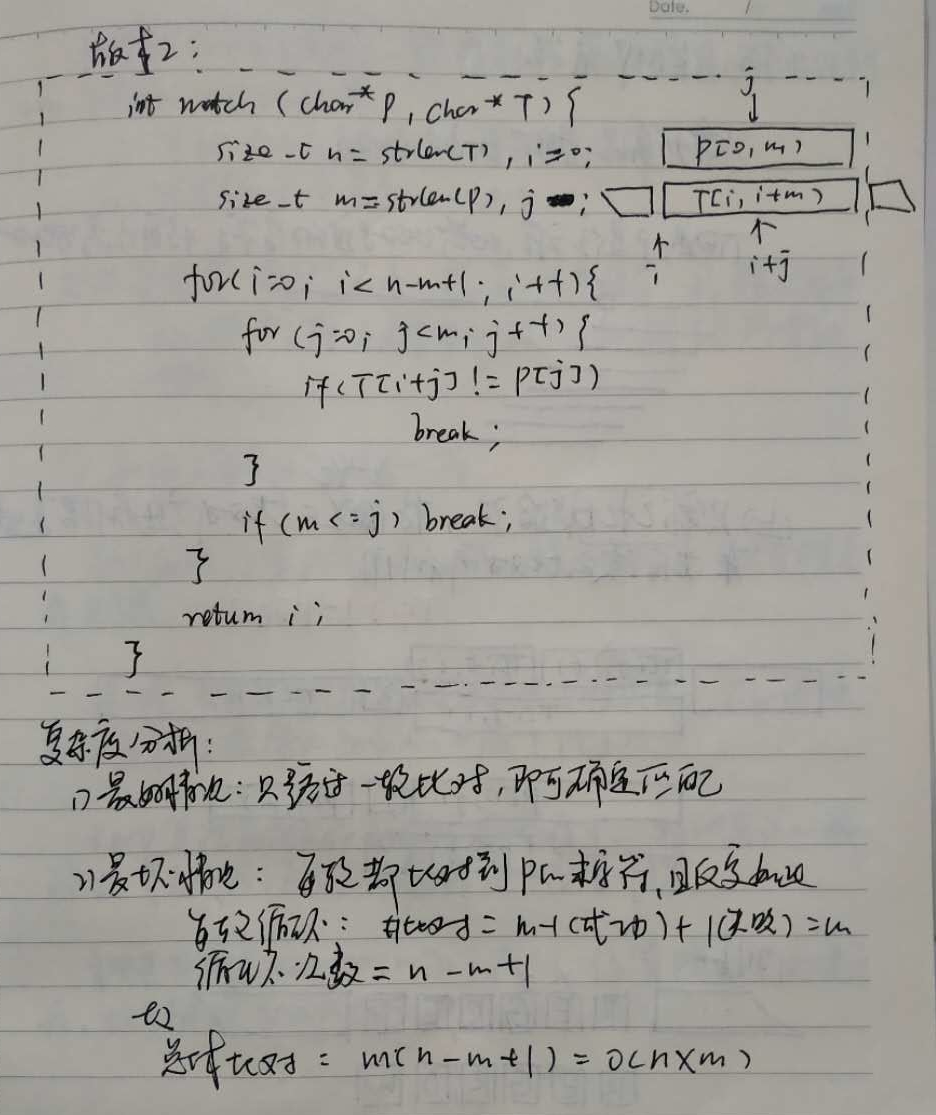 Date. /
版本2:
int match (char* P, char* T) {
size_t n = strlen(T), i=0;
size_t m = strlen(P), j ;
j
P[0, m)
T[i, i+m)
i
i+j
for(i=0; i < n-m+1; i++){
for (j=0; j<m; j++) {
if(T[i+j] != P[j])
break;
}
if (m <= j) break;
}
return i;
}
复杂度分析:
1) 最好情况: 只经过一轮比对,即可确定匹配
2) 最坏情况: 每轮都比对到P的末字符,且反复如此
每轮循环: #比对 = m-1(成功) + 1(失败) = m
循环次数 = n - m+1
故
总体比对 = m(n-m+1) = O(n×m)